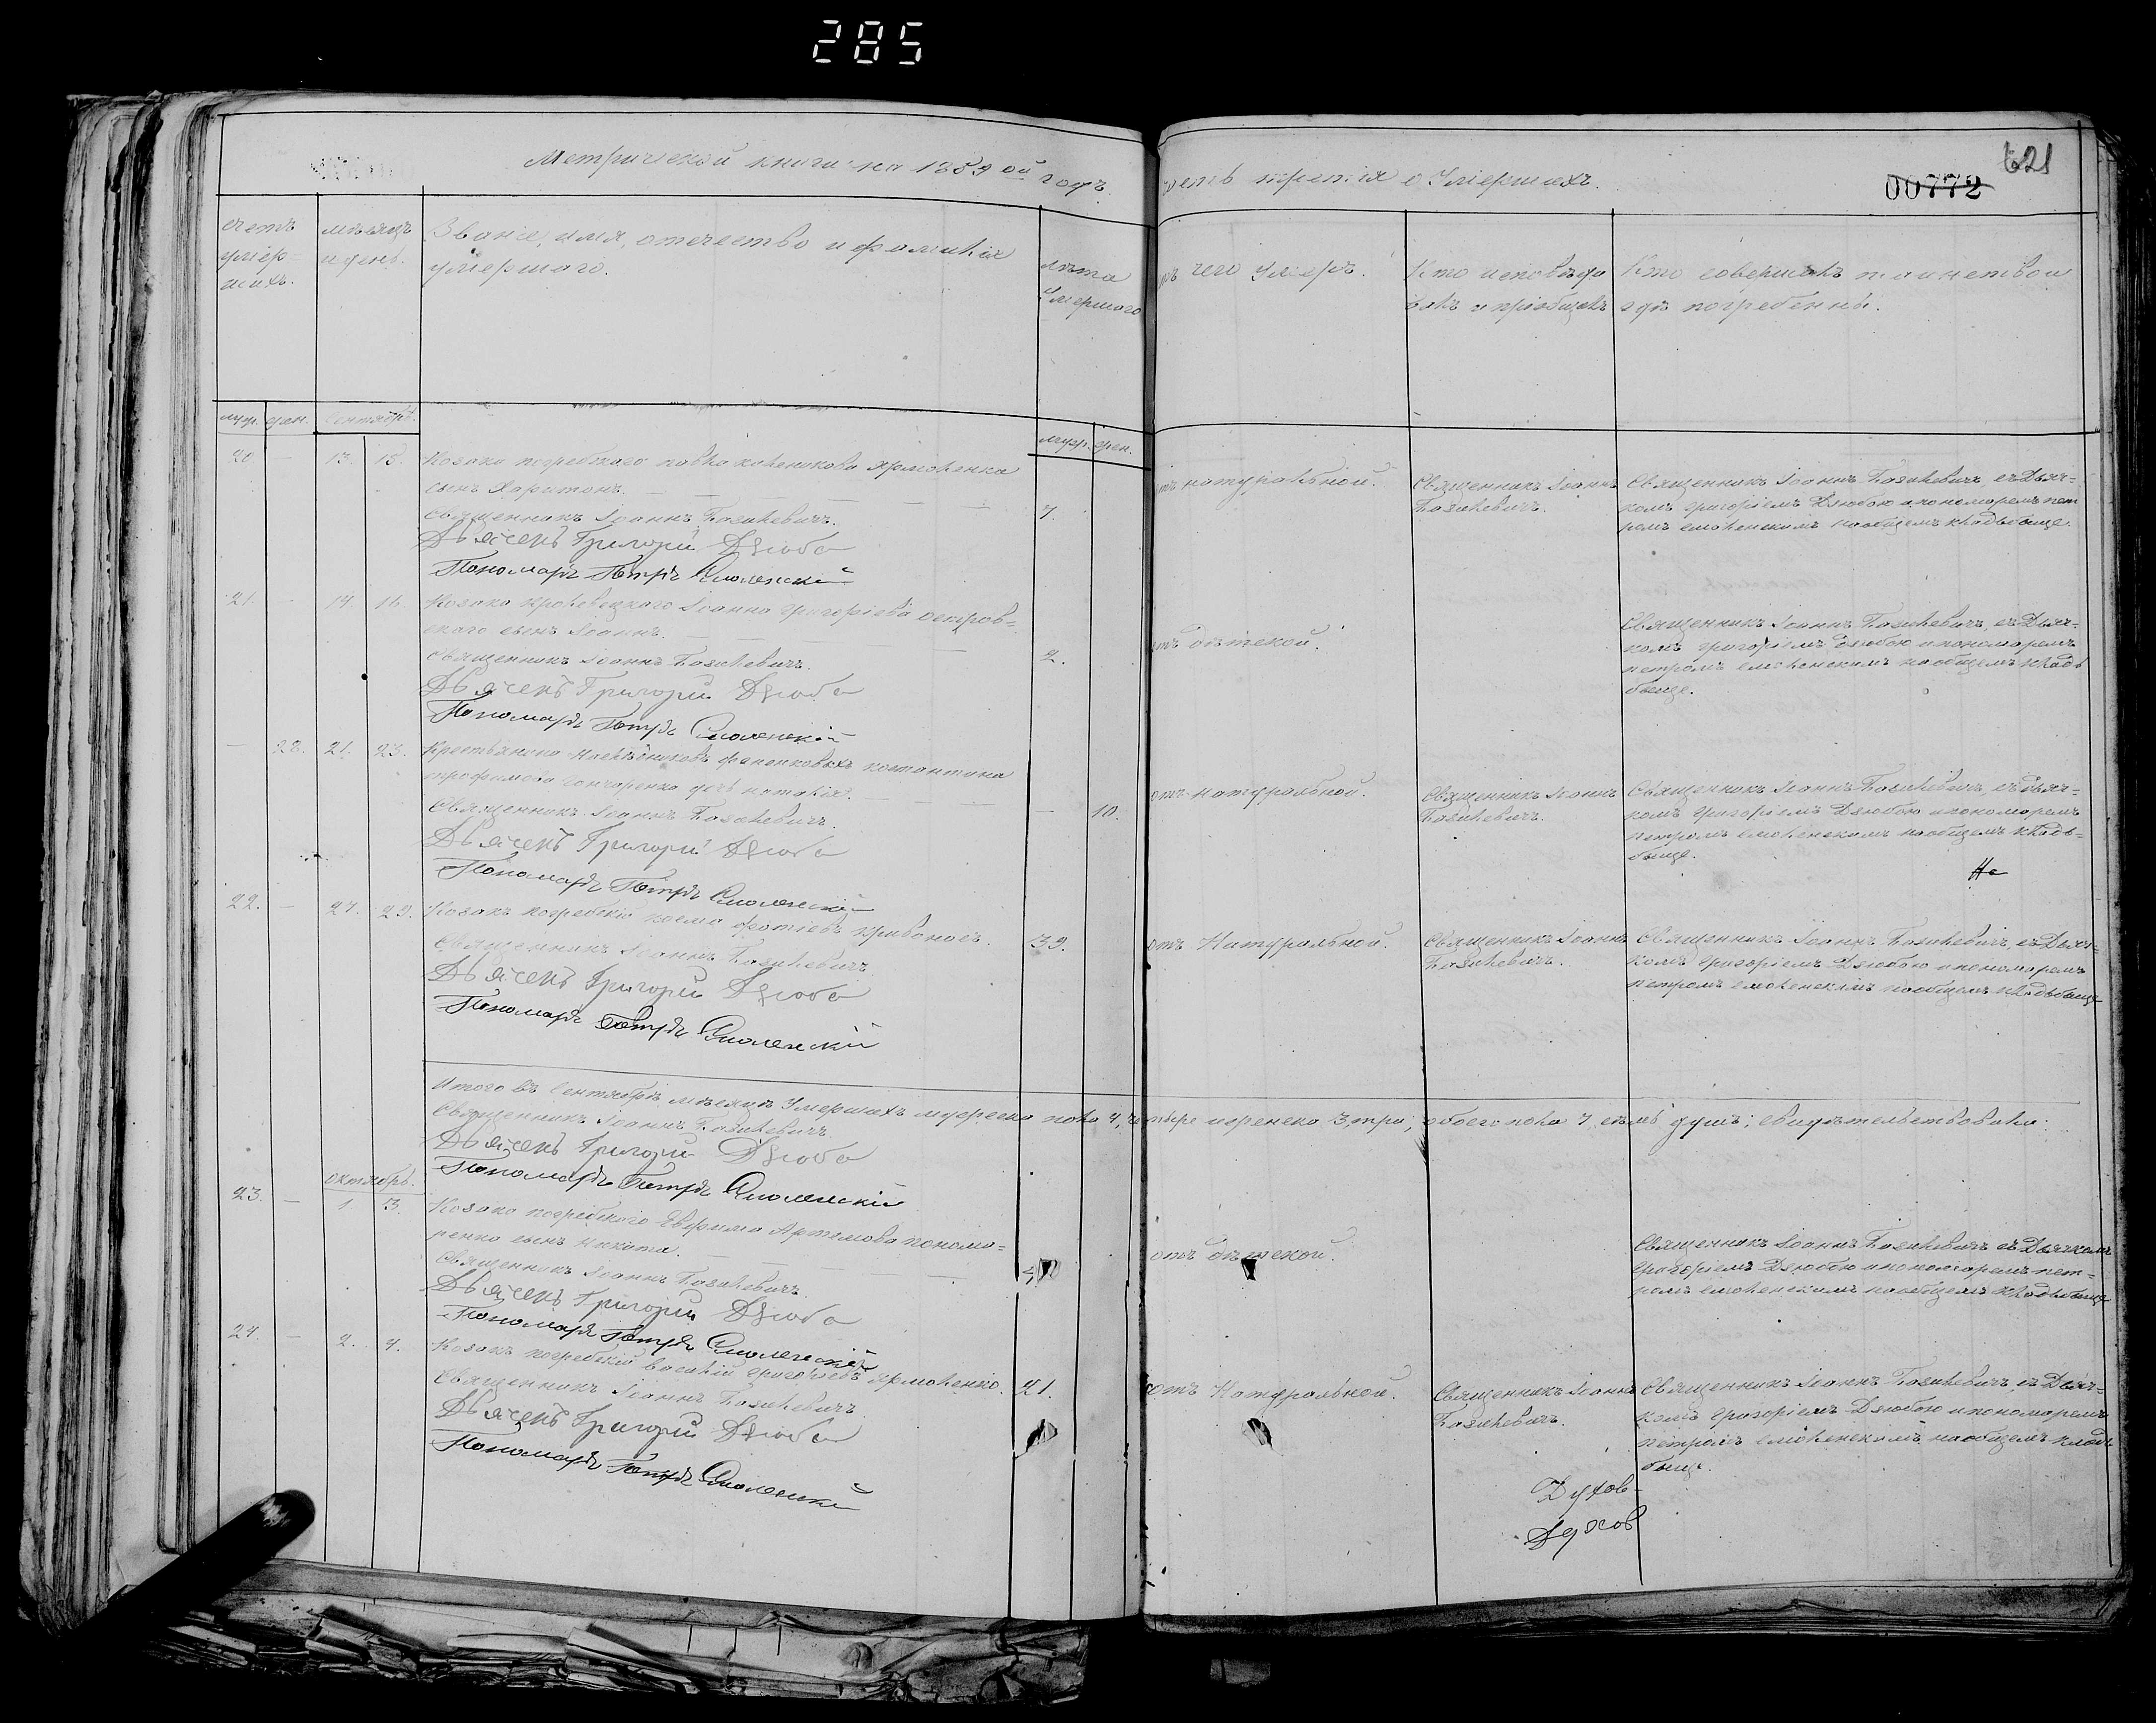 285
Метрической книги на 1859 ой годъ
часть третія о Умершихъ.
00772
621
счетъ умер= шихъ.
мѣсяцъ и день.
Званіе, имя, отечество и фамилія
умершаго.
лѣта Умершаго
отъ чего Умеръ.
Кто исповѣдо
валъ и пріобщалъ
Кто совершалъ таинство и
гдѣ погребенны.
муж. жен.
Сентябрь.
муж. жен.
20. — 13. 15. Козака погребского павла
сынъ Харитонъ.
Священникъ Іоаннъ Базилевичъ.
Дьячекъ Григорій Дзюба
Пономарь Петръ Смоленскій
7.
отъ натуральной.
Священникъ Іоаннъ
Базилевичъ.
Священникъ Іоаннъ Базилевичъ, съ Дьяч=
комъ григоріемъ Дзюбою и пономаремъ пет
ромъ смоленскимъ на общемъ кладьбище.
21. — 14. 16. Козака кролевецкого Іоанна григоріева остров=
ского сынъ Іоаннъ.
Священникъ Іоаннъ Базилевичъ.
Дьячекъ Григорій Дзюба
Пономарь Петръ Смоленскій
2.
отъ дѣтской.
Священникъ Іоаннъ Базилевичъ, съ Дьяч=
комъ григоріемъ Дзюбою и пономаремъ
петромъ смоленскимъ на общемъ кладь
бище.
— 28. 21. 23. Крестьянина наслѣдниковъ костантина
трофимова Гончаренка дочь наталія.
Священникъ Іоаннъ Базилевичъ.
Дьячекъ Григорій Дзюба
Пономарь Петръ Смоленскій
— 10.
отъ натуральной.
Священникъ Іоаннъ
Базилевичъ.
Священникъ Іоаннъ Базилевичъ, съ дьяч=
комъ григоріемъ Дзюбою и пономаремъ
петромъ смоленскимъ на общемъ кладь=
бище.
На
22. — 27. 29. Козакъ погребскій косма фотіевъ кривоносъ.
Священникъ Іоаннъ Базилевичъ
Дьячекъ Григорій Дзюба
Пономарь Петръ Смоленскій
39.
отъ Натуральной.
Священникъ Іоаннъ
Базилевичъ.
Священникъ Іоаннъ Базилевичъ, съ Дьяч=
комъ григоріемъ Дзюбою и пономаремъ
петромъ смоленскимъ на общемъ кладьбище
Итого въ Сентябрѣ мѣсяцѣ Умершихъ мужеска пола 4, четыре и женска 3, три; обоего пола 7, семь душъ; свидѣтельствовали:
Священникъ Іоаннъ Базилевичъ
Дьячекъ Григорій Дзюба
Пономарь Петръ Смоленскій
октябрь.
23. — 1. 3. Козака погребского Евфима Артемова понома=
ренка сынъ никита.
Священникъ Іоаннъ Базилевичъ.
Дьячекъ Григорій Дзюба
Пономарь Петръ Смоленскій
отъ дѣтской.
Священникъ Іоаннъ Базилевичъ съ Дьячкомъ
григоріемъ Дзюбою и пономаремъ пет=
ромъ смоленскимъ на общемъ кладьбище
24. — 2. 4. Козакъ погребскій василій григоріевъ ярмоленко.
Священникъ Іоаннъ Базилевичъ
Дьячекъ Григорій Дзюба
Пономарь Петръ Смоленскій
21.
отъ Натуральной.
Священникъ Іоаннъ
Базилевичъ.
Священникъ Іоаннъ Базилевичъ, съ Дьяч=
комъ григоріемъ Дзюбою и пономаремъ
петромъ смоленскимъ на общемъ кладь
бище.
Духов
Духов